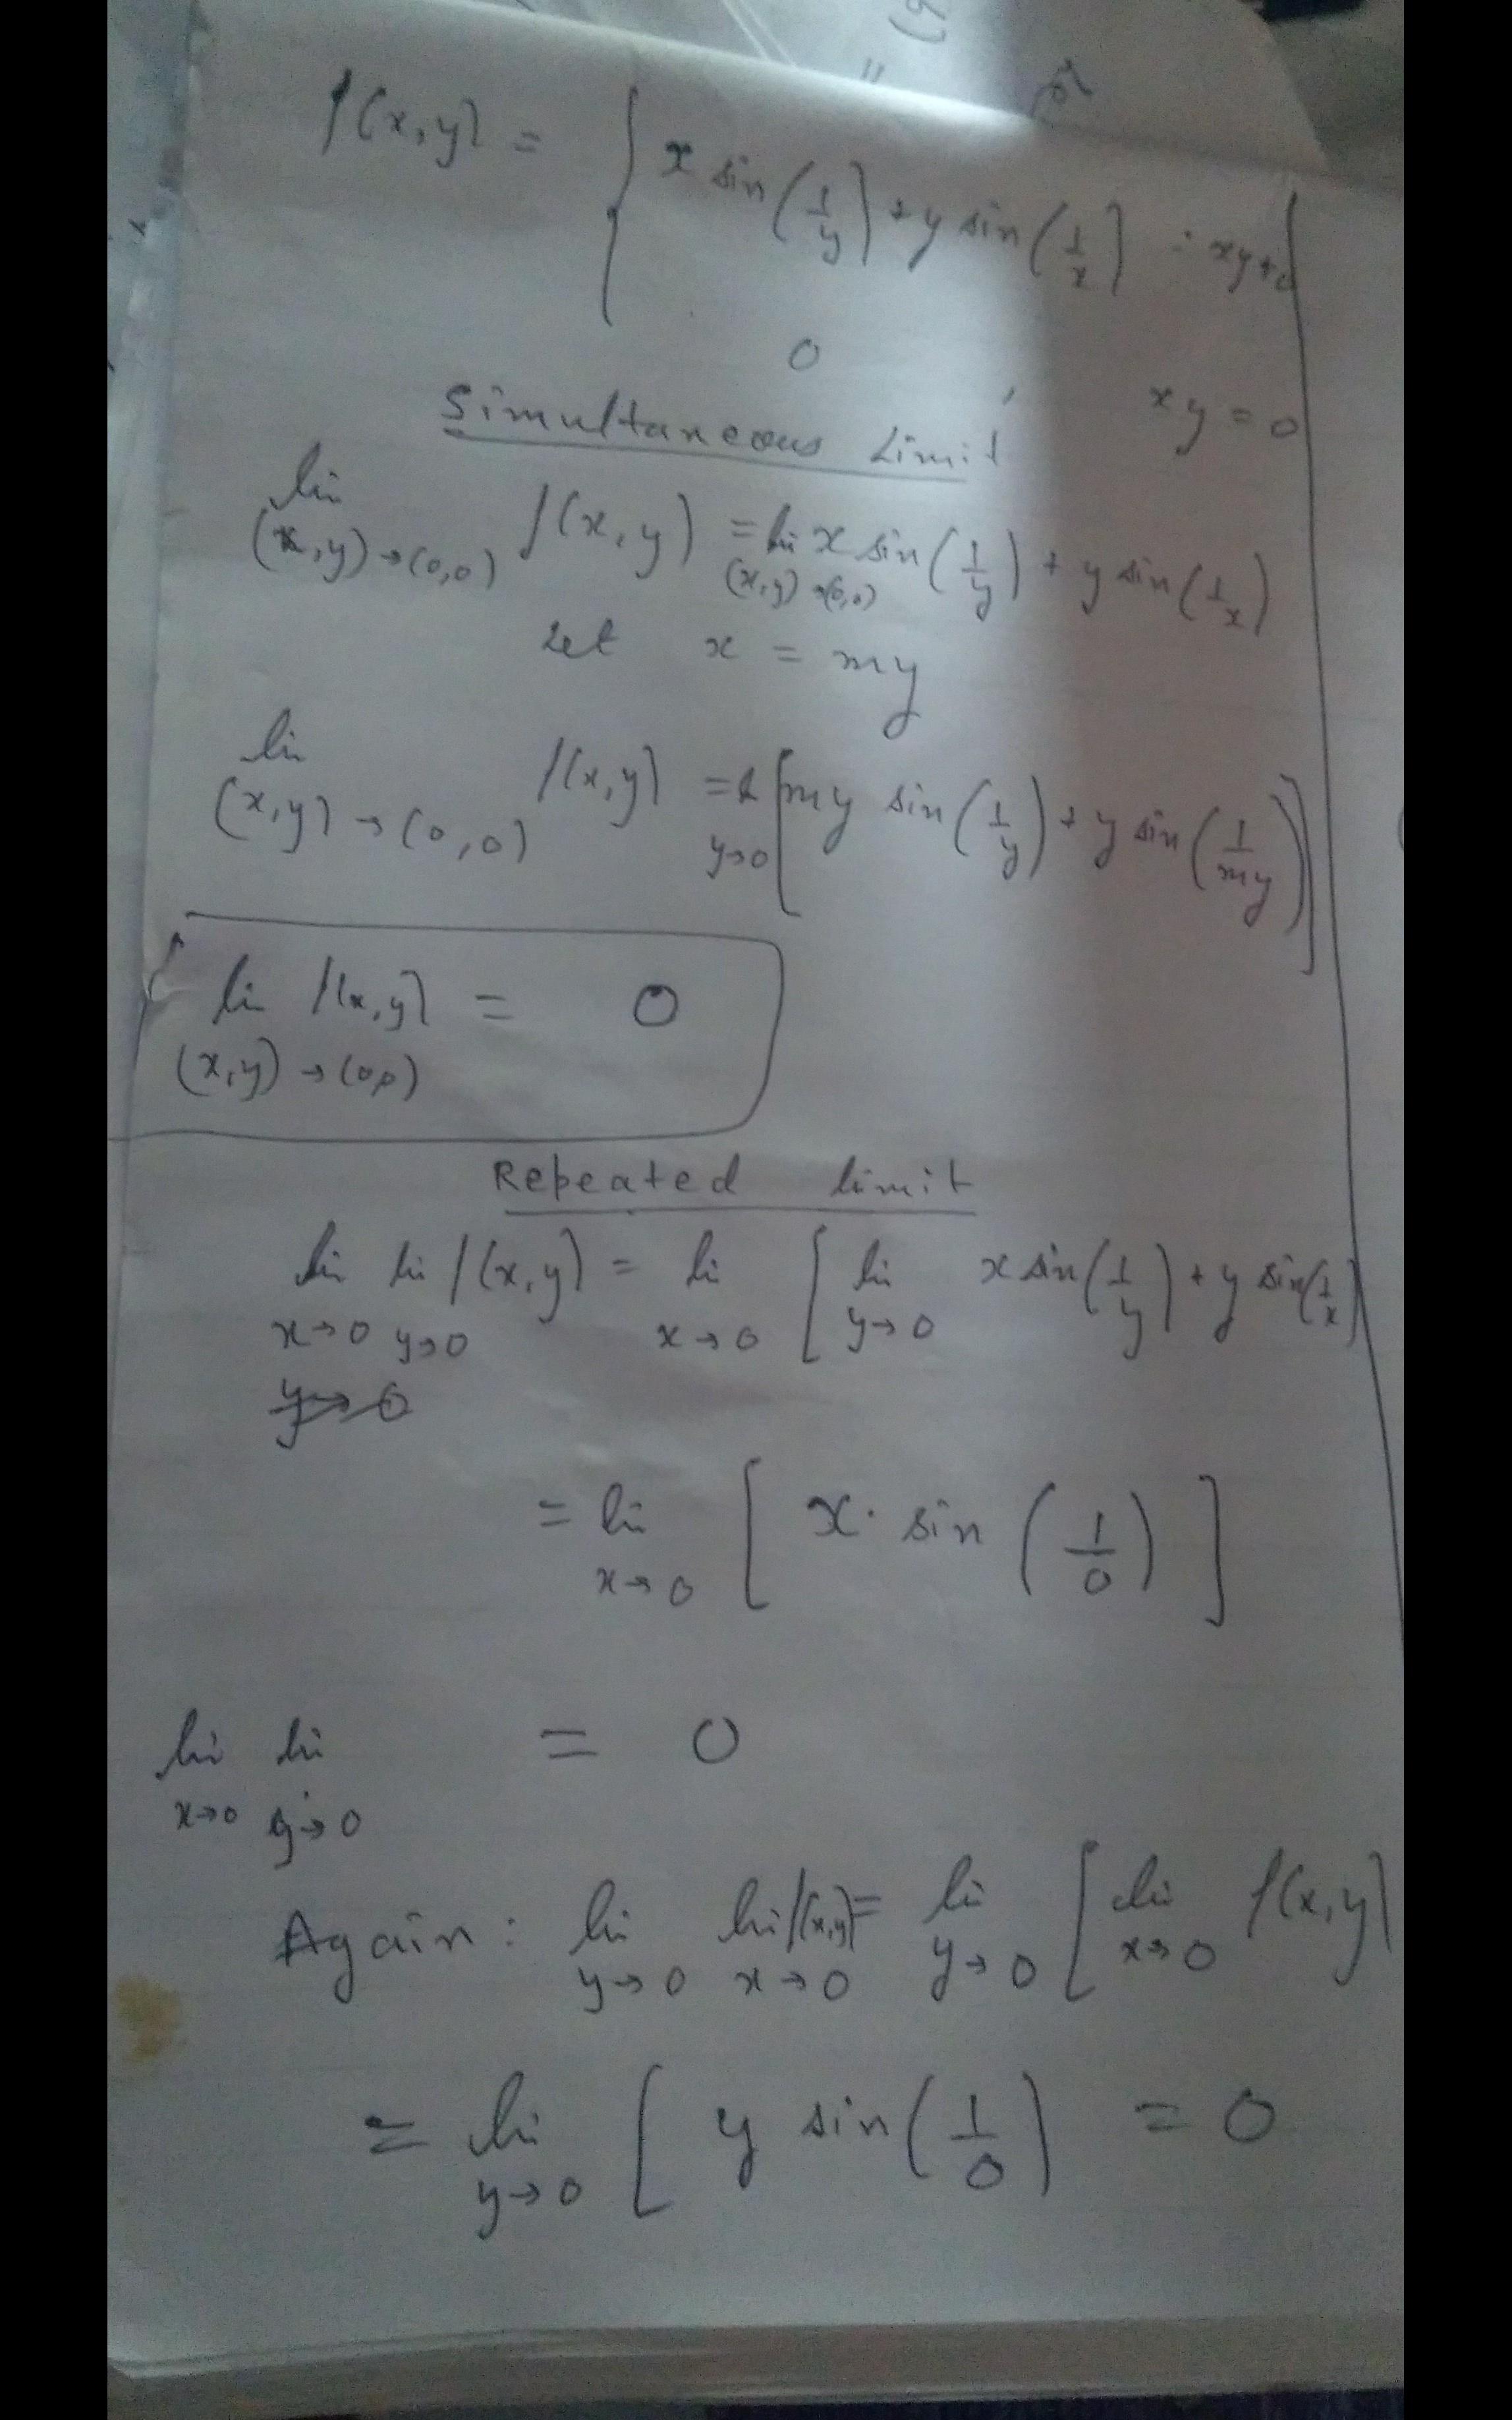 f(x,y) = { x sin(1/y) + y sin(1/x) : xy ≠ 0
0 , xy = 0
Simultaneous Limit
li (x,y)→(0,0) f(x,y) = li (x,y)→(0,0) x sin(1/y) + y sin(1/x)
Let x = my
li (x,y)→(0,0) f(x,y) = l y→0 [my sin(1/y) + y sin(1/my)]
li f(x,y) = 0
(x,y)→(0,0)
Repeated limit
li x→0 li y→0 f(x,y) = li x→0 [ li y→0 x sin(1/y) + y sin(1/x)
y→0
= li x→0 [ x · sin(1/0) ]
li x→0 li y→0 = 0
Again : li y→0 li x→0 f(x,y) = li y→0 [ li x→0 f(x,y)
= li y→0 [ y sin(1/0) = 0